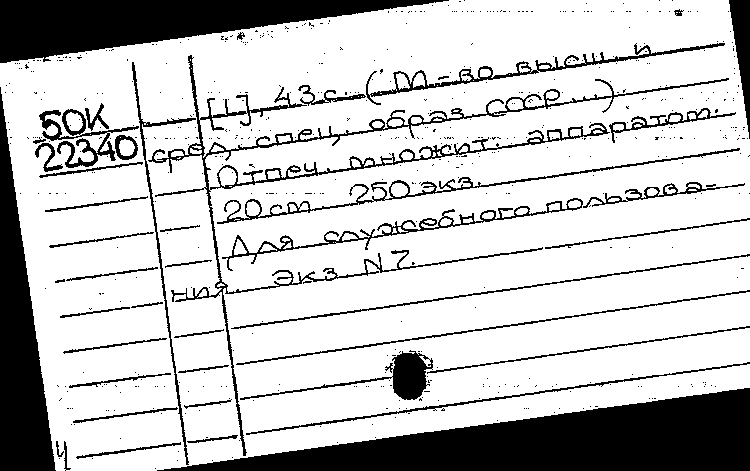 50К
22340
[1], 43 с. (М-во высш. и
сред. спец. образ. СССР...).
Отпеч. множит. аппаратом.
20 см. 250 экз.
Для служебного пользова-
ния. Экз. N 7.